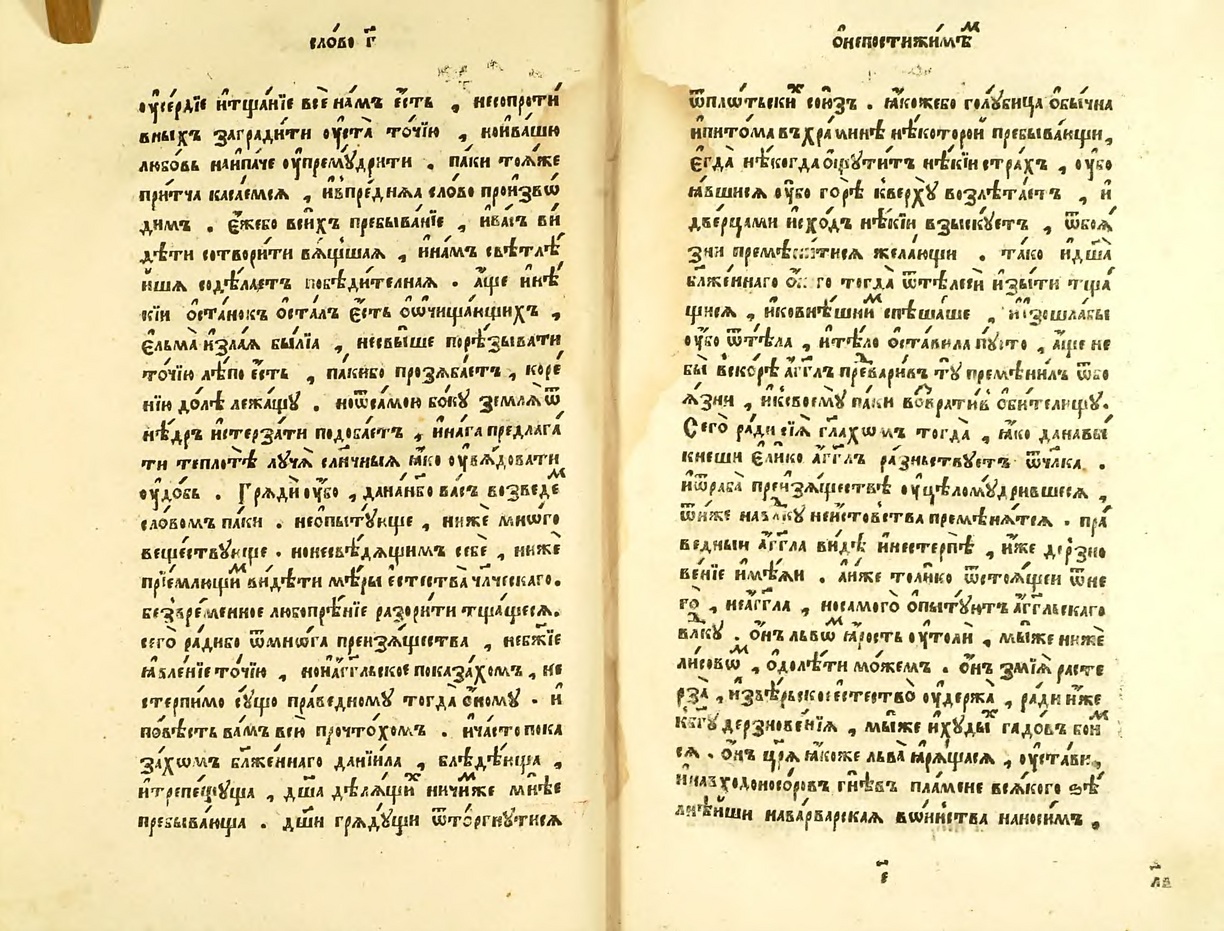 сло́во г҃
ᲂу҆се́рдїе и҆тща́нїе всѐ на́мъ є҆́сть , несопроти́
вныхъ загради́ти ᲂу҆ста̀ то́чїю , но̑и҆ва́шꙋ
любо́вь наи҆па́че ᲂу҆премꙋ́дрити . па́ки то́ѧже
при́тча каса́емсѧ , и҆впре́днѧѧ сло́во произво́
димъ . є҆́жебо вси́хъ пребыва́нїе , и҆ва́съ ви́
дѣти сотвори́ти вѧ́щшаѧ , и҆на́мъ свѣтлѣ́
ишѧ содѣ́лаетъ побѣди́телнаѧ . а҆́ще и҆нѣ́
кїи ѻ҆ста́нокъ ѻ҆ста́лъ є҆́сть ѻ҆ѡ҆чища́ющихъ ,
є҆льма̀ и҆зла́ѧ бы́лїа , несвы́ше порѣ́зывати
то́чїю лѣ́по є҆́сть , па́кибо прозѧба́етъ , коре́
нїю до́лѣ лежа́щꙋ . ноѿса́мою бо́кꙋ землѧ̀ ѿ
нѣ́дръ и҆стерза́ти подоба́етъ , и҆на́га предлага́
ти теплотѣ̀ лꙋча̀ сл҃нчныѧ ꙗ҆́ко ᲂу҆вѧ́довати
ᲂу҆до́бь . Грѧди́ ᲂу҆́бо , дана́нбо ва́съ возведе́м
сло́вомъ па́ки . неѻ҆пытꙋ́юще , нижѐ мно́го
вещьствꙋ́юще . нонесвѣ́дѧщимъ себѐ , нижѐ
прїе́млющим ви́дѣти мѣ́ры є҆стества̀ чл҃ческаго.
безвре́менное любопрѣ́нїе разори́ти тща́щесѧ.
сего̀ ра́дибо ѿмно́га преизѧ́щества , неб҃жїе
ꙗ҆вле́нїе то́чїю , нои҆а҆́гг҃льское показа́хомъ , не
стерпи́мо сꙋ́що пра́ведномꙋ тогда̀ ѻ҆́номꙋ . и҆
по́вѣсть ва́мъ всю̀ прочто́хомъ . и҆ча́сто пока
за́хѡмъ бл҃же́ннаго данїи́ла , блѣдѣ́юща ,
и҆трепе́щꙋща , дш҃а̀ дѣ́лающих ничи́мже мнѣ́е
пребыва́юща . дш҃и грѧдꙋ́щи ѿто́ргнꙋтисѧ
ѻ҆непостижи́мѣм
ѿпло́тьских сою́зъ . ꙗ҆́кожебо голꙋби́ца ѻ҆бы́чна
и҆пито́ма въхра́минѣ нѣ́которой пребыва́ющи,
є҆гда̀ нѣ́когда ѻ҆щꙋти́тъ нѣ́кїи стра́хъ , ᲂу҆бо
ꙗ҆́вшисѧ ᲂу҆́бо горѣ̀ кве́рхꙋ возлѣта́етъ , и҆
две́рцами и҆схо́дъ нѣ́кїи взы́скꙋетъ , ѿбоѧ́
зни премѣни́тисѧ жела́ющи . та́ко и҆дш҃а̀
бл҃же́ннаго ѻ҆́ного тогда̀ ѿтѣлесѝ и҆зы́ти тща́
щисѧ , и҆ковнѣ́шним спѣ́шаше , и҆и҆зошла́бы
ᲂу҆́бо ѿтѣ́ла , и҆тѣ́ло ѻ҆ста́вила пꙋ́сто , а҆́ще не
бы̀ вско́рѣ а҆́гг҃лъ предвари́въ тꙋ̀ премѣни́лъ ѿбо
ѧ́зни , и҆ксвоемꙋ̀ па́ки возврати́в ѻ҆би́телищꙋ.
Сего̀ ра́ди сїѧ̀ гл҃ахѡмъ тогда̀ , ꙗ҆́ко данавы́
кнеши є҆ли́ко а҆́гг҃лъ ра́зньствꙋетъ ѿчл҃ка .
и҆ѿраба̀ преизѧ́ществѣ ᲂу҆цѣломꙋ́дрившесѧ ,
ѿни́же на влⷣкꙋ неи́стовства премѣнѧ́тсѧ . пра́
ведныи а҆́гг҃ла ви́дѣ и҆нестерпѣ̀ , и҆́же дерзно
ве́нїе и҆мѣ́ѧи . а҆ни́же толи́ко ѿстоѧ́щеи ѿне
го̀ , неа҆́гг҃ла , носамого̀ ѻ҆пытꙋ́ютъ а҆́гг҃льскаго
влⷣкꙋ . ѻ҆́нъ льво́м ꙗ҆́рость ᲂу҆толѝ , мы́же нижѐ
лисово́м , ѻ҆долѣ́ти мо́жемъ . ѻ҆́нъ змі́ѧ расте
рза̀ , и҆звѣ́рьское є҆стество̀ ᲂу҆держа̀ , ра́ди и҆́же
кбг҃ꙋ дерзнове́нїѧ , мы́же и҆хꙋды́х га́довъ бои́м
сѧ . ѻ҆́нъ цр҃ѧ̀ ꙗ҆́коже льва̀ ꙗ҆рѧ́щасѧ , ᲂу҆ста́ви,
и҆навходоно́соровъ гнѣ́въ пла́мене всѧ́кого ѕѣ
лнѣ́йши нава́рварскаѧ во́инства нано́симъ .
є҃